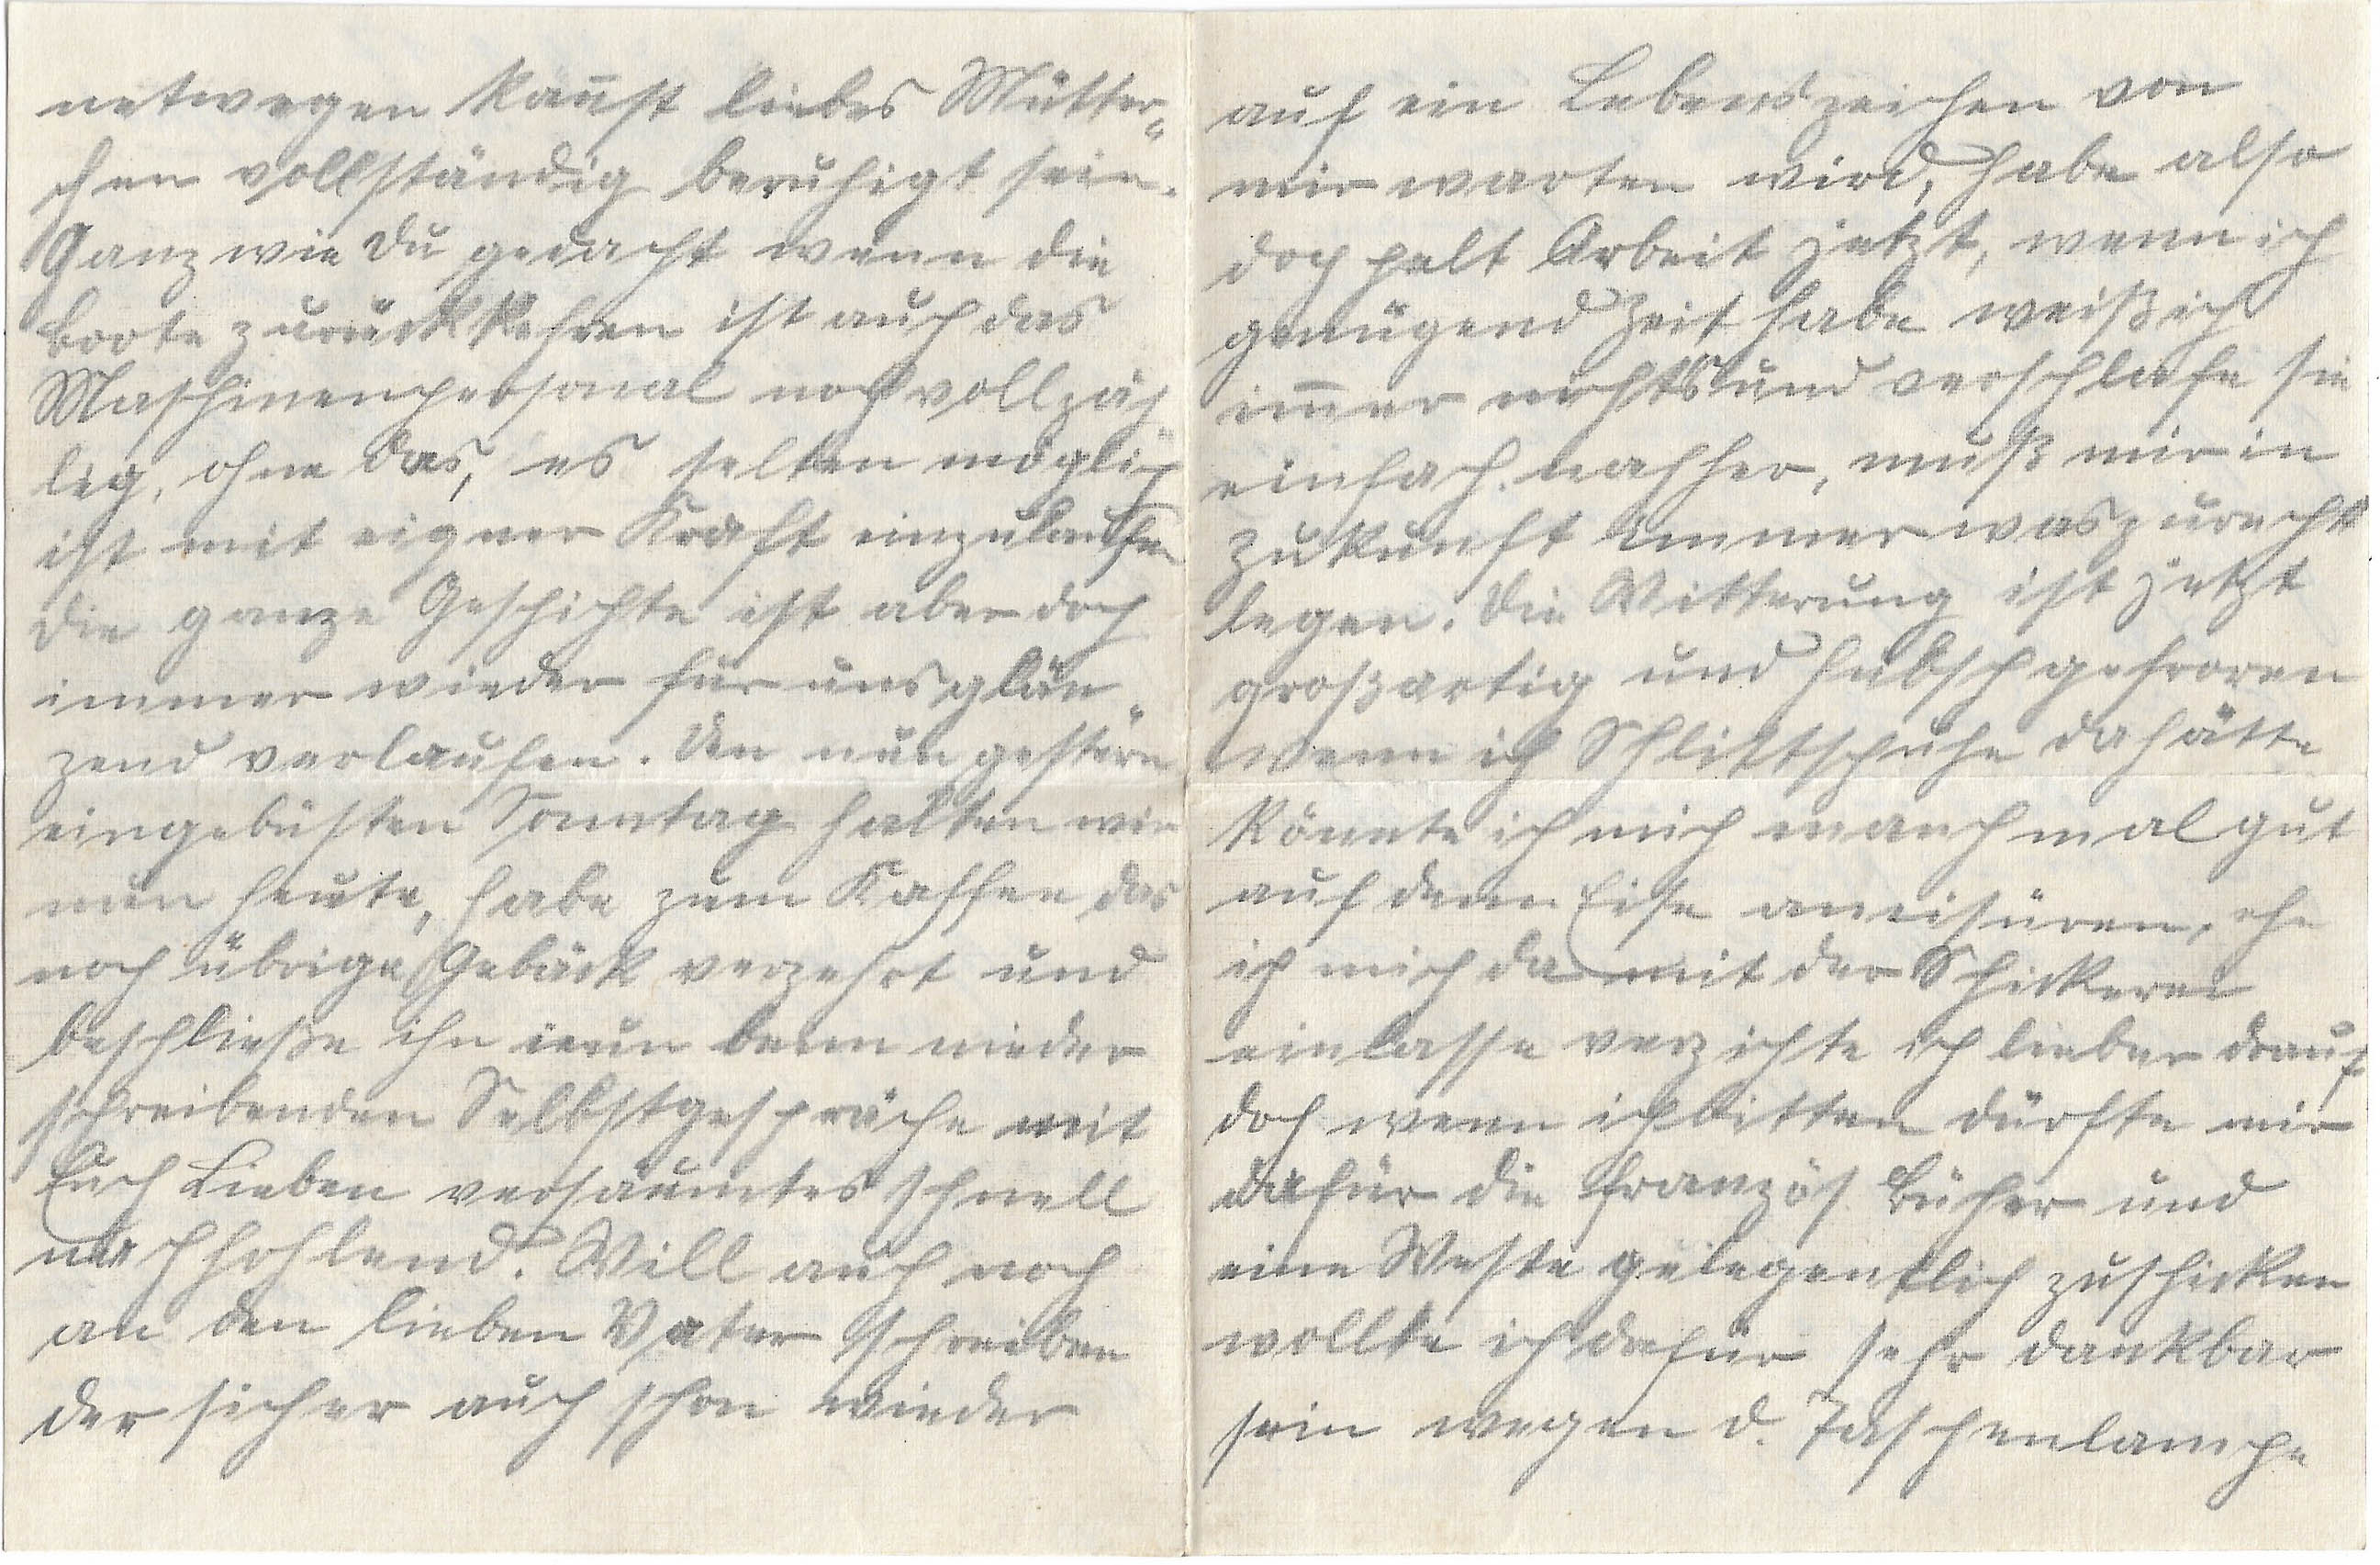 netwegen kannst liebes Mütter-
chen vollständig beruhigt sein.
Ganz wie Du gedacht wenn die
Boote zurückkehren ist auch das
Maschinenpersonal noch vollzäh
lig, ohne das, es selten möglich
ist mit eigner Kraft einzulaufen
die ganze Geschichte ist aber doch
immer wieder für uns glän-
zend verlaufen. Den nun gestern
eingebüsten Sonntag halten wir
nun heute, habe zum Kaffee das
noch übrige Gebäck verzehrt und
beschließe ihn nun beim nieder
schreibenden Selbstgespräche mit
Euch Lieben versäumtes schnell
nachhohlend. Will auch noch
an den lieben Vater schreiben
der sicher auch schon wieder
auf ein Lebenszeichen von
mir warten wird, habe also
doppelt Arbeit jetzt, wenn ich
genügend Zeit habe weiß ich
immer nichts und verschlafe sie
einfach. nachher, muß mir in
Zukunft immer was zurecht
legen. Die Witterung ist jetzt
großartig und hübsch gefroren
wenn ich Schlittschuhe da hätte
könnte ich mich manchmal gut
auf dem Eise amisüren, ehe
ich mich da mit der Schickerei
einlasse verzichte ich lieber drauf
doch wenn ich bitten dürfte mir
dafür die französ. Bücher und
eine Weste gelegentlich zuschicken
wollte ich dafür sehr dankbar
sein wegen d. Taschenlampe